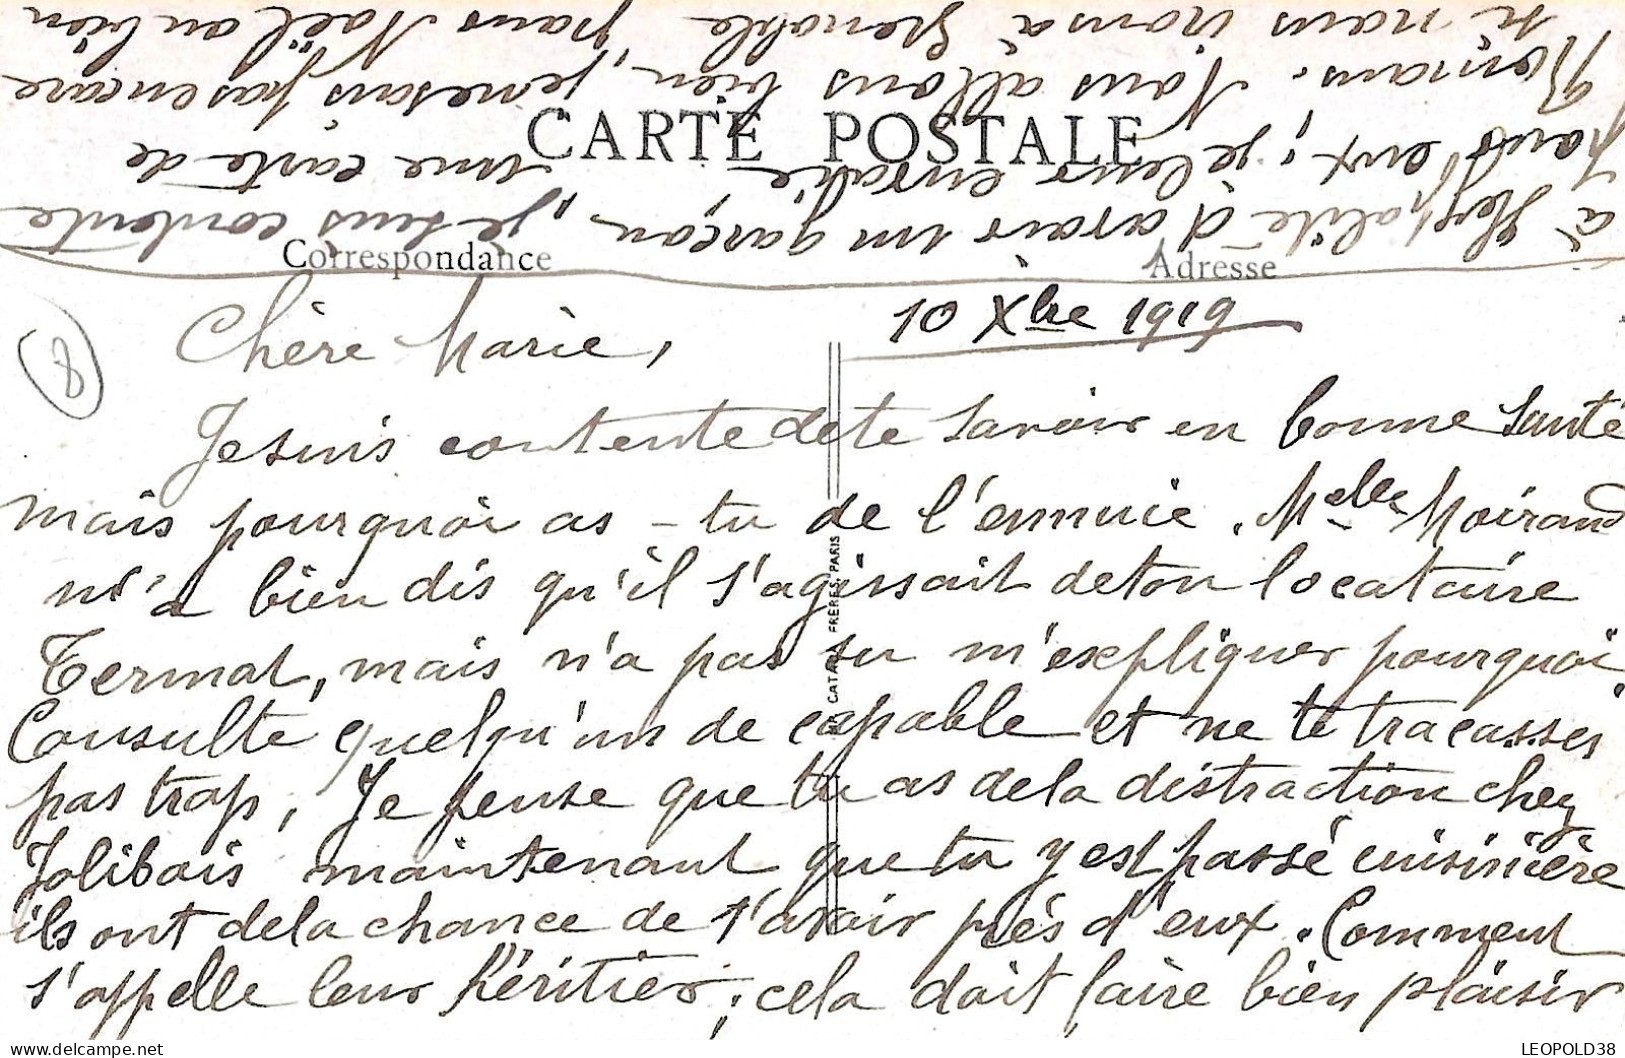 CARTE POSTALE
Correspondance
Adresse
10 Xbre 1919
8
Chère Marie,
Je suis contente de te savoir en bonne santé
mais pourquoi as-tu de l'ennuie. Melle Moirand
m'a bien dis qu'il s'agissait de ton locataire
Termat, mais n'a pas su m'expliquer pourquoi
Consulte quelqu'un de capable et ne te tracasses
pas trop, Je pense que tu as de la distraction chez
Jolibois maintenant que tu y est passé cuisinière
ils ont de la chance de t'avoir près d'eux. Comment
s'appelle leur héritier, cela doit faire bien plaisir
à Hospalité d'avoir un garçon, je suis contente
pour eux, je leur envoie une carte de
Romans. Nous allons bien, je ne sais pas encore
si nous irons à Grenoble pour Noël ou bien
CATALA FRÈRES, PARIS
LEOPOLD38